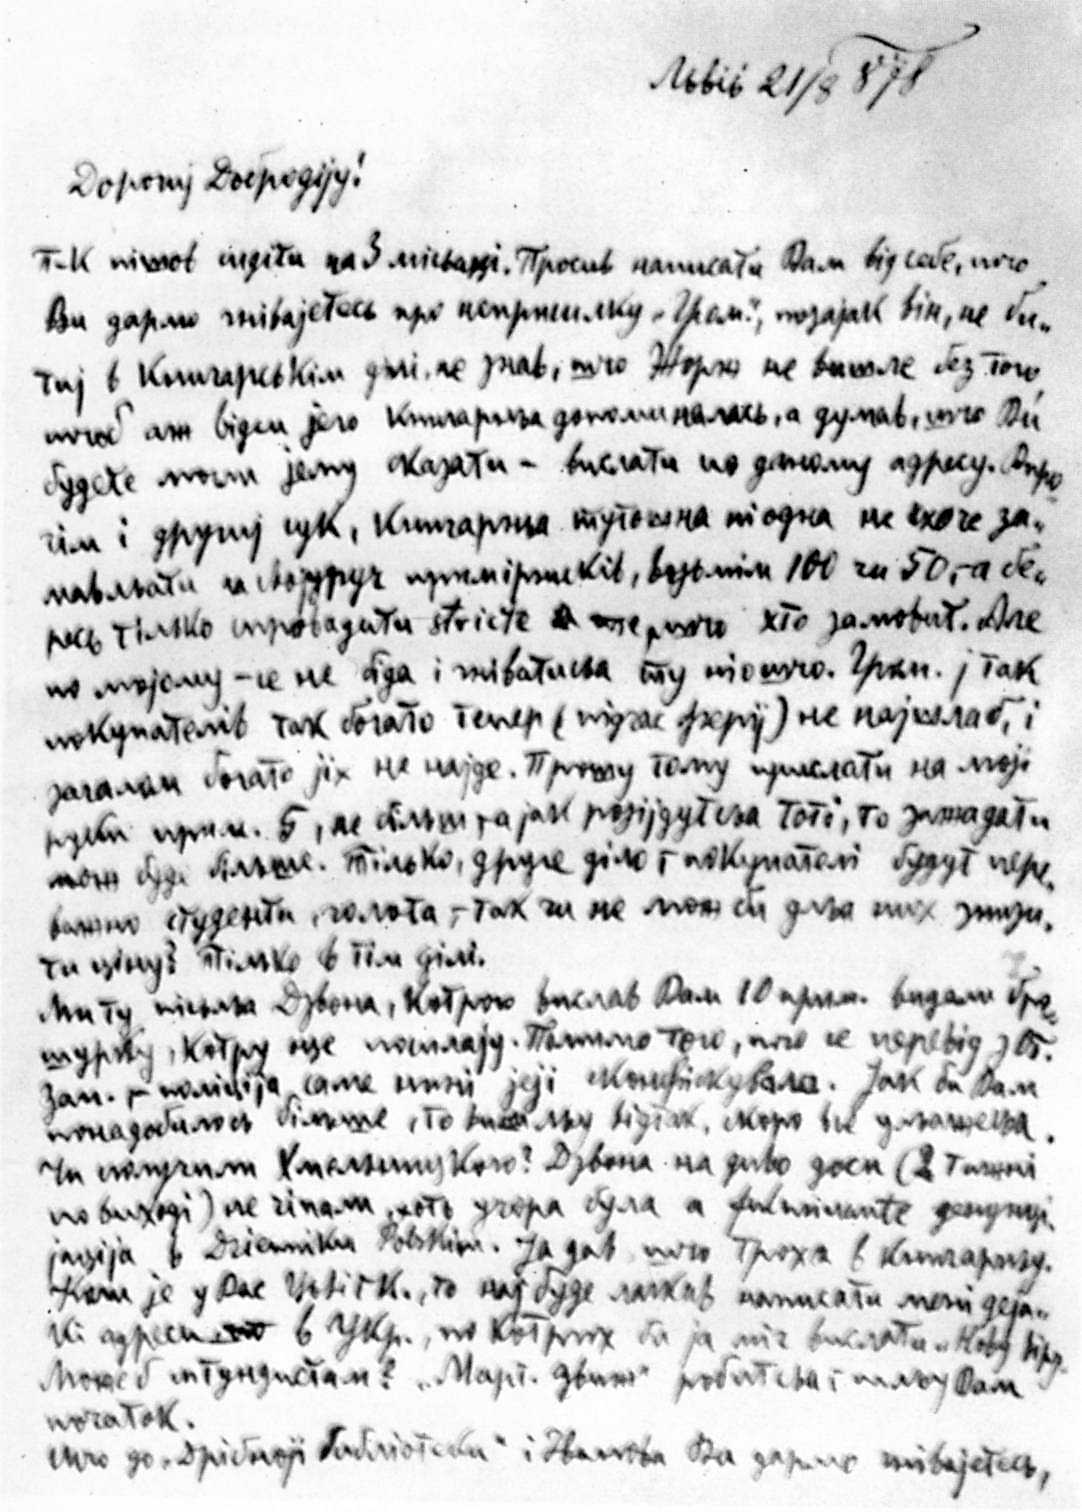 Львів 21/8 878
Дорогиј Добродіју!
П-к пішов сидіти на 3 місьаці. Просив написати Вам від себе, шчо
Ви дармо гніваjетесь про неприсилку „Гром.", позаjак він, не би-
тиj в книгарськім ділі, не знав, шчо Жорж не вишле без того,
шчоб аж відси jего книгарньа допоминалась, а думав, шчо Ви
будете могли jему сказати – вислати по даному адресу. Впро-
чім і другиj сук, книгарньа тутошна ніодна не схоче за-
мавльати на своjу руч примірників, возьмім 100 чи 50, – а бе-
ресь тілько спровадити stricte те, шчо хто замовит. Але
по моjому – се не біда і гніватисьа ту ніошчо. Гром. j так
покупателів так богато тепер (підчас феріj) не наjшлаб, і
загалом богато jіх не наjде. Прошу тому прислати на моjі
руки прим. 5, не більш, а jак розіjдутсьа тоті, то зажадати
мож буде більше. Тілько, друге діло: покупателі будут пере-
важно студенти, голота, – так чи не мож би дльа них знизи-
ти ціну? Тілько в тім ділі.
Ми ту písльа Дзвона, котрого вислав Вам 10 прим. видали бро-
шурку, котру оце посилаjу. Помимо того, шчо се перевід з От.
Зап. – поліціjа саме нині jеjі сконфіскувала. Jак би Вам
понадобилось більше, то вишльу відтак, скоро все ульажесьа.
Чи получили Хмельницкого? Дзвона на диво доси (2 тижні
по виході) не чіпали, хоть учора була а fulminante денунци-
jаціjа в Dzienniku Polskim. Jа дав шчо троха в книгарньу.
Коли jе у Вас Цьвітк., то наj буде ласкав написати мені деjа-
кі адреси в Укр., по котрих би jа міг вислати „Нову віру".
Можеб штундистам? „Март. Движ" робитсьа: шльу Вам
початок.
Шчо до „Дрібноjі библіотеки" і Иванова Ви дармо гніваjетесь,